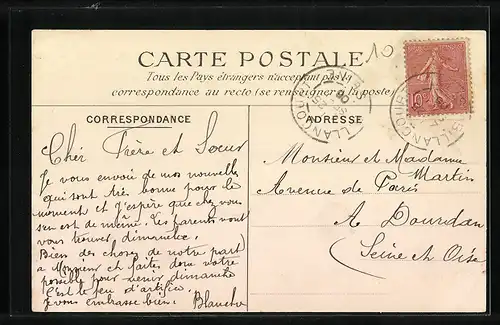 10
CARTE POSTALE
Tous les Pays étrangers n'acceptant pas la
correspondance au recto (se renseigner à la poste)
CORRESPONDANCE
Cher Frère et Soeur
Je vous envoie de mes nouvelles
qui sont très bonne pour le
moment et j'espère que chez vous
s'en est de même. Les parents vont
vous trouver dimanche.
Bien des choses de notre part
a Monsieur et faites donc votre
possible pour venir dimanche
C'est le feu d'artifice.
Je vous embrasse bien. Blanche
ADRESSE
Monsieur et Madame
Martin
Avenue de Paris
A Dourdan
Seine et Oise
BILLANCOURT
10
BILLANCOURT